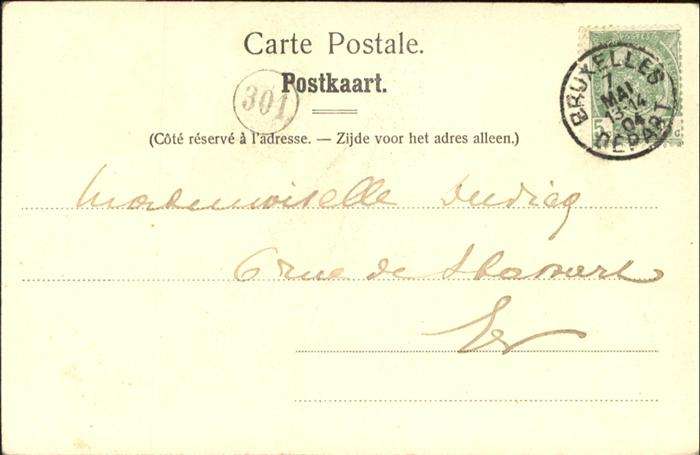 Carte Postale.
Postkaart.
301
(Côté réservé à l'adresse. — Zijde voor het adres alleen.)
BRUXELLES
7
MAI
13-14
04
DEPART
5
Mademoiselle
6 rue de